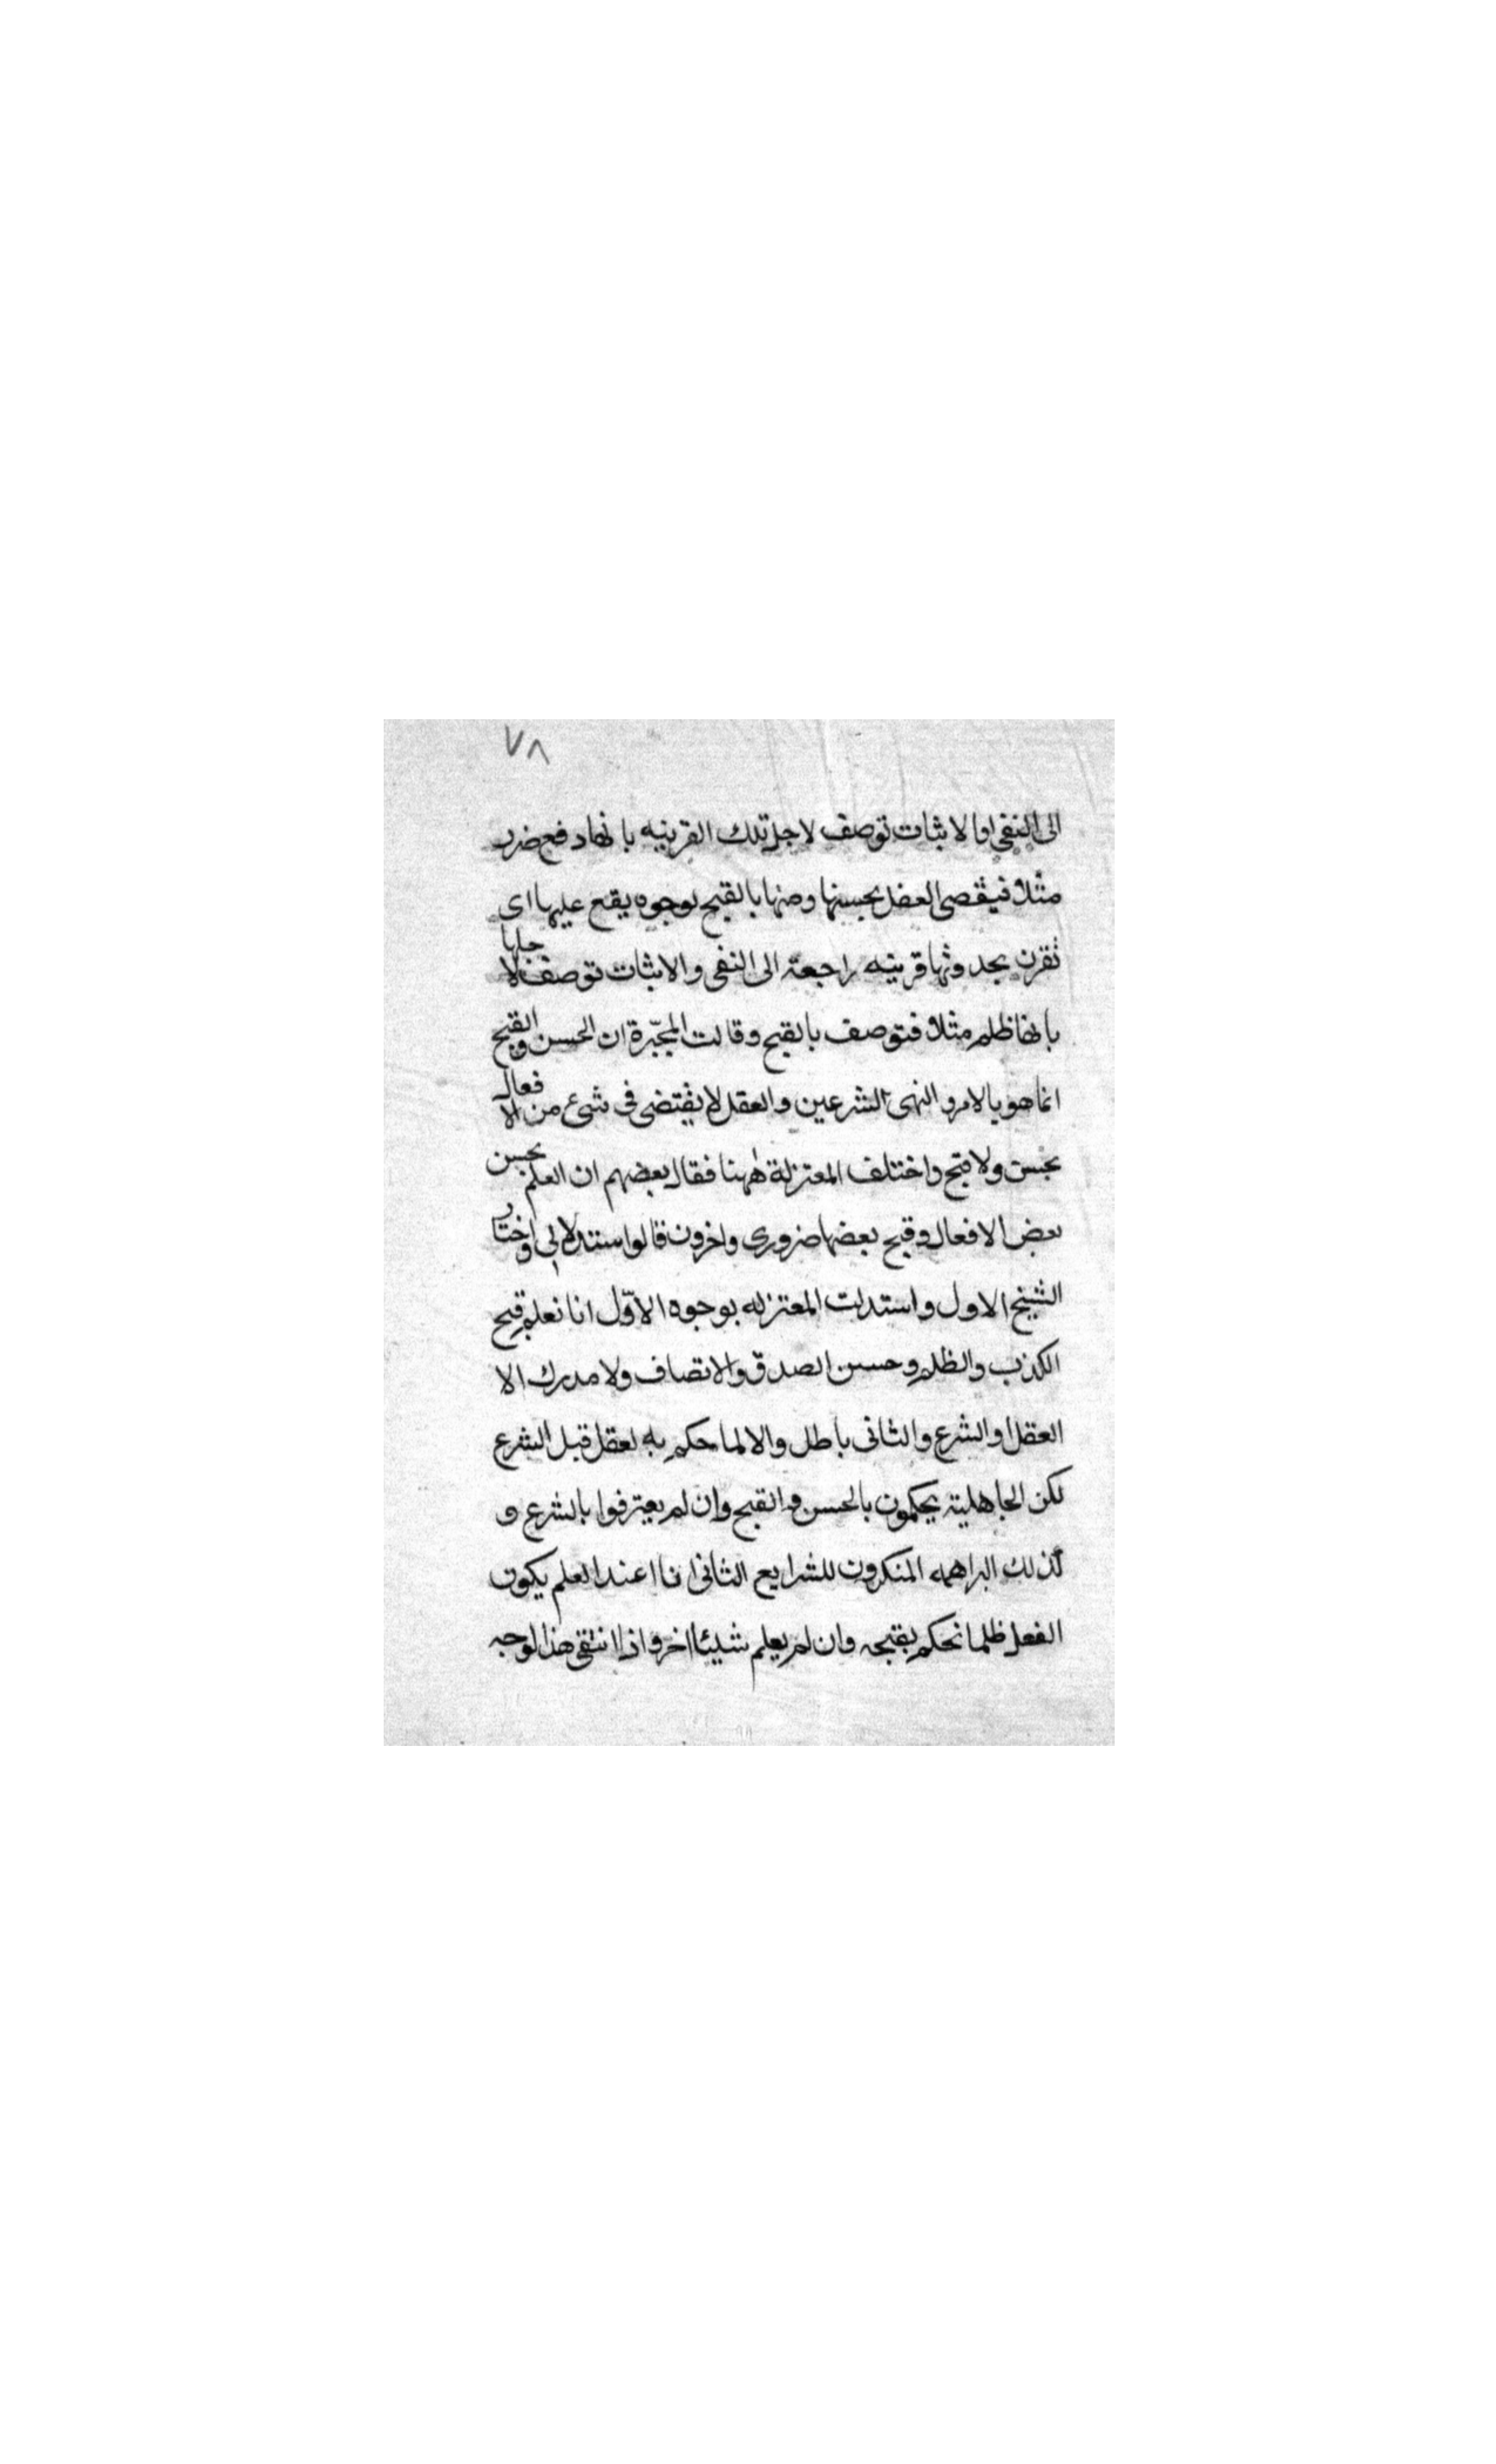 ٧٨
الى النفى او الاثبات توصف لاجل تلك القرينيه بانها دفع ضرر
مثلا فيقصى العقل بحسنها ومنها بالقبح لوجوه يقع عليها اى
نقرن بحدوثها قرينيه راجعة الى النفى والاثبات توصف لاجلها
بانها ظلم مثلا فتوصف بالقبح وقالت المجبّرة ان الحسن والقبح
انما هو بالامر والنهى الشرعين والعقل لا يقتضى فى شىء من الافعال
بحسن ولا قبح واختلف المعتزلة ههنا فقال بعضهم ان العلم بحسن
بعض الافعال وقبح بعضها ضرورى واخرون قالوا ستدلالى واختار
الشيخ الاول واستدلت المعتزله بوجوه الاوّل انا نعلم قبح
الكذب والظلم وحسن الصدق والانصاف ولا مدرك الا
العقل او الشرع والثانى باطل والا لما حكم به لعقل قبل الشرع
لكن الجاهلية يحكمون بالحسن والقبح وان لم يعترفوا بالشرع و
كذلك البراهمه المنكرون للشرايع الثانى انا عند العلم يكون
الفعل ظلما نحكم بقبحه وان لم يعلم شيئا اخر واذا انتقى هذا لوجه